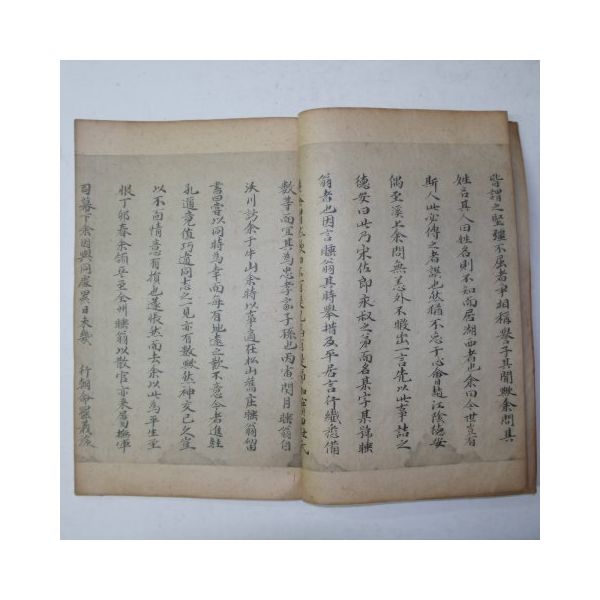 皆謂之堅彊不屈者爭相稱譽予其聞歟余問其
姓名其人曰姓名則不知而居湖西者也余曰今世豈有
斯人此必傳之者誤也然猶不忘于心會曰趙江陰德安
偶至溪上余問無恙外不暇出一言先以此事詰之
德安曰此乃宋佐郎永叔之弟而名某字某號睡
翁者也因言睡翁其時舉措及平居言行纖悉備
數筆而宜其為忠孝家子孫也丙
閏月睡翁自
沃川訪余于牛山余將以事適在松山舊庄睡翁留
書曰嘗以同時為幸而每有地遠之歎不意今者進駐
孔邇竟值巧違同志之一見亦有數歟然神交已久豈
以不面情意有損也遂悵然而去余以此為平生至
恨丁卯春余領兵至全州睡翁以散官亦來屬撫軍
司幕下余因與同處累日未幾 行朝命罷義旅